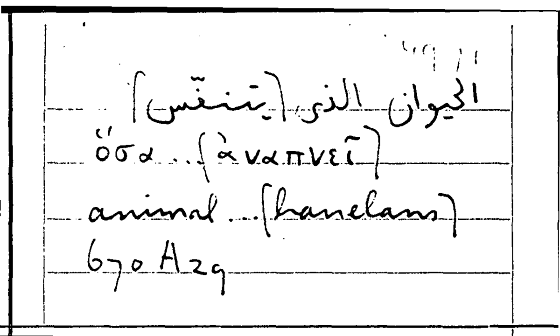 الحيوان الذى [يتنفّس]
ὅσα ... [ἀναπνεῖ]
animal ... [hanelans]
670 A29